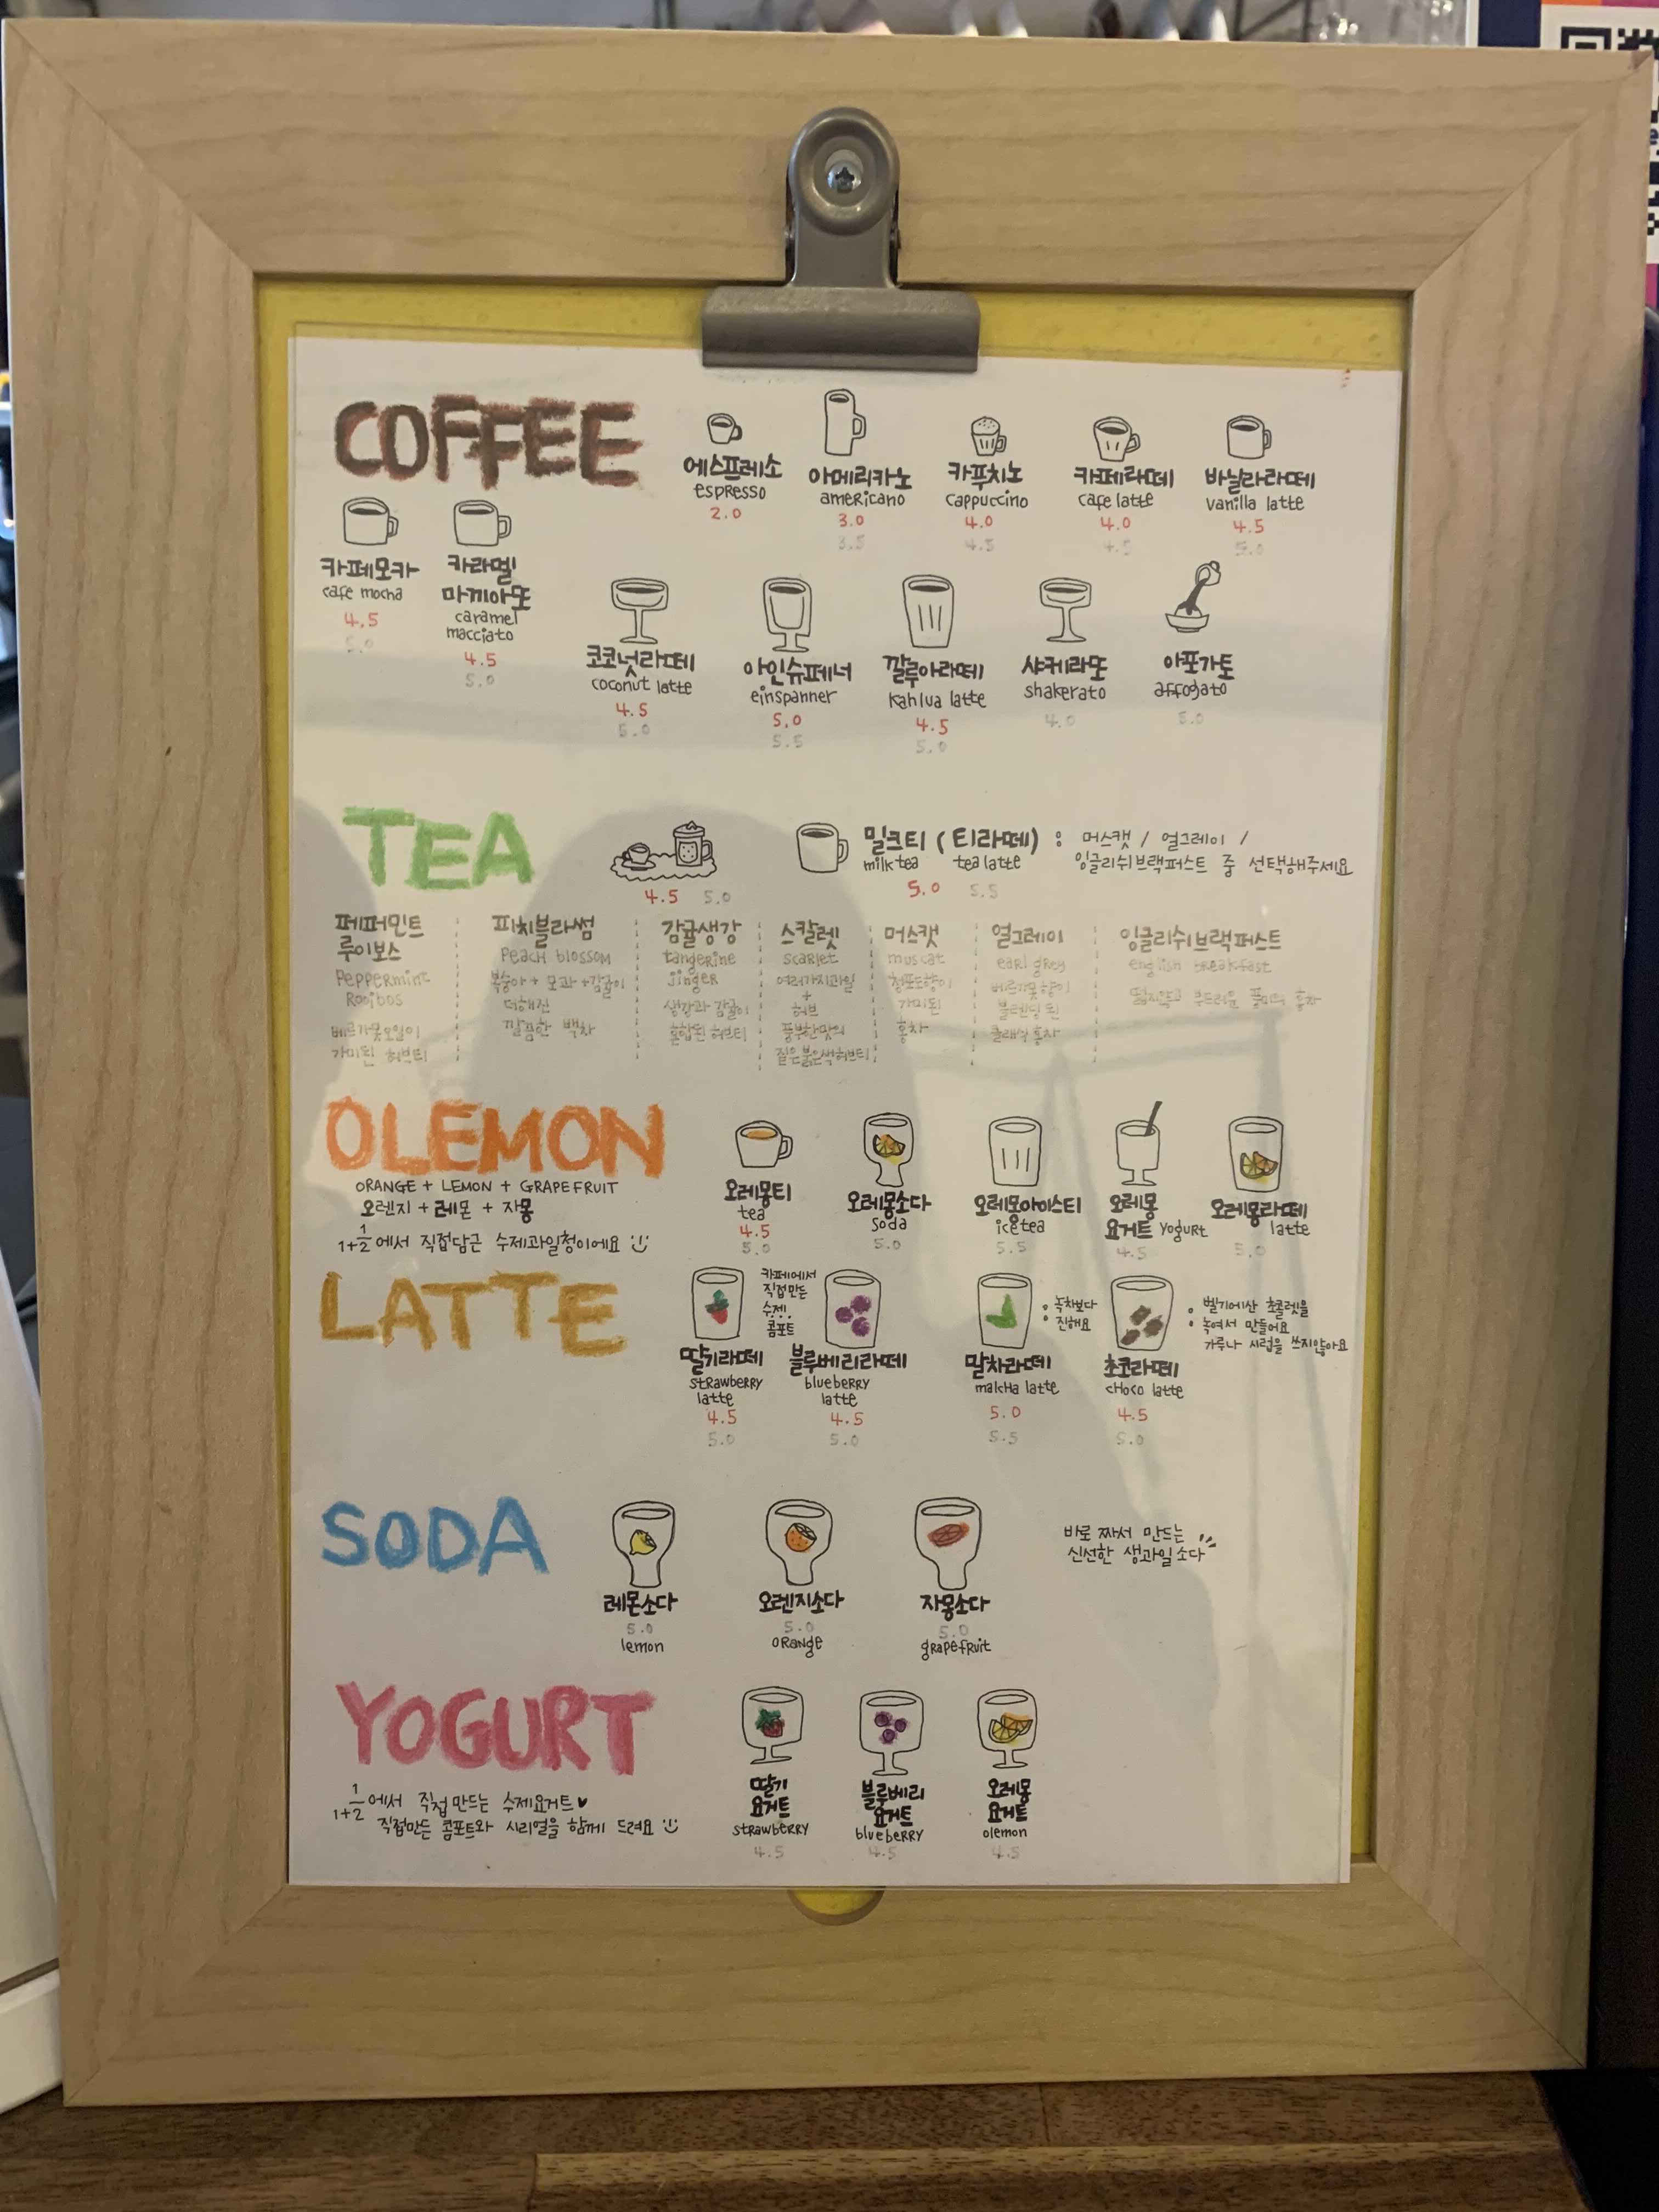 COFFEE
에스프레소
espresso
2.0
아메리카노
americano
3.0
3.5
카푸치노
cappuccino
4.0
4.5
카페라떼
cafe latte
4.0
4.5
바닐라라떼
vanilla latte
4.5
5.0
카페모카
cafe mocha
4.5
5.0
카라멜
마끼아또
caramel
macciato
4.5
5.0
코코넛라떼
coconut latte
4.5
5.0
아인슈페너
einspanner
5.0
5.5
깔루아라떼
kahlua latte
4.5
5.0
샤케라또
shakerato
4.0
아포가토
affogato
5.0
TEA
4.5 5.0
밀크티 (티라떼) : 머스캣 / 얼그레이 /
milk tea tea latte 잉글리쉬브랙퍼스트 중 선택해주세요
5.0 5.5
페퍼민트
루이보스
Peppermint
Rooibos
베르가못오일이
가미된 허브티
피치블라썸
Peach blossom
복숭아 + 모과 + 감귤이
더해진
깔끔한 백차
감귤생강
tangerine
jinger
생강과 감귤이
혼합된 허브티
스칼렛
scarlet
여러가지과일
+
허브
풍부한맛의
짙은붉은색허브티
머스캣
muscat
청포도향이
가미된
홍차
얼그레이
earl grey
베르가못향이
블렌딩된
클래식홍차
잉글리쉬브랙퍼스트
english breakfast
떫지않고 부드러운 풍미의 홍차
OLEMON
ORANGE + LEMON + GRAPEFRUIT
오렌지 + 레몬 + 자몽
1+1/2에서 직접담근 수제과일청이에요
오레몽티
tea
4.5
5.0
오레몽소다
soda
5.0
오레몽아이스티
ice tea
5.5
오레몽
요거트 yogurt
4.5
오레몽라떼
latte
5.0
LATTE
카페에서
직접만든
수제!
콤포트
딸기라떼
strawberry
latte
4.5
5.0
블루베리라떼
blueberry
latte
4.5
5.0
: 녹차보다
진해요
말차라떼
malcha latte
5.0
5.5
: 벨기에산 초콜렛을
녹여서 만들어요
가루나 시럽을 쓰지않아요
초코라떼
choco latte
4.5
5.0
SODA
레몬소다
5.0
lemon
오렌지소다
5.0
orange
자몽소다
5.0
grapefruit
바로 짜서 만드는
신선한 생과일소다
YOGURT
1+1/2에서 직접 만드는 수제요거트♥
직접만든 콤포트와 시리얼을 함께 드려요
딸기
요거트
strawberry
4.5
블루베리
요거트
blueberry
4.5
오레몽
요거트
olemon
4.5